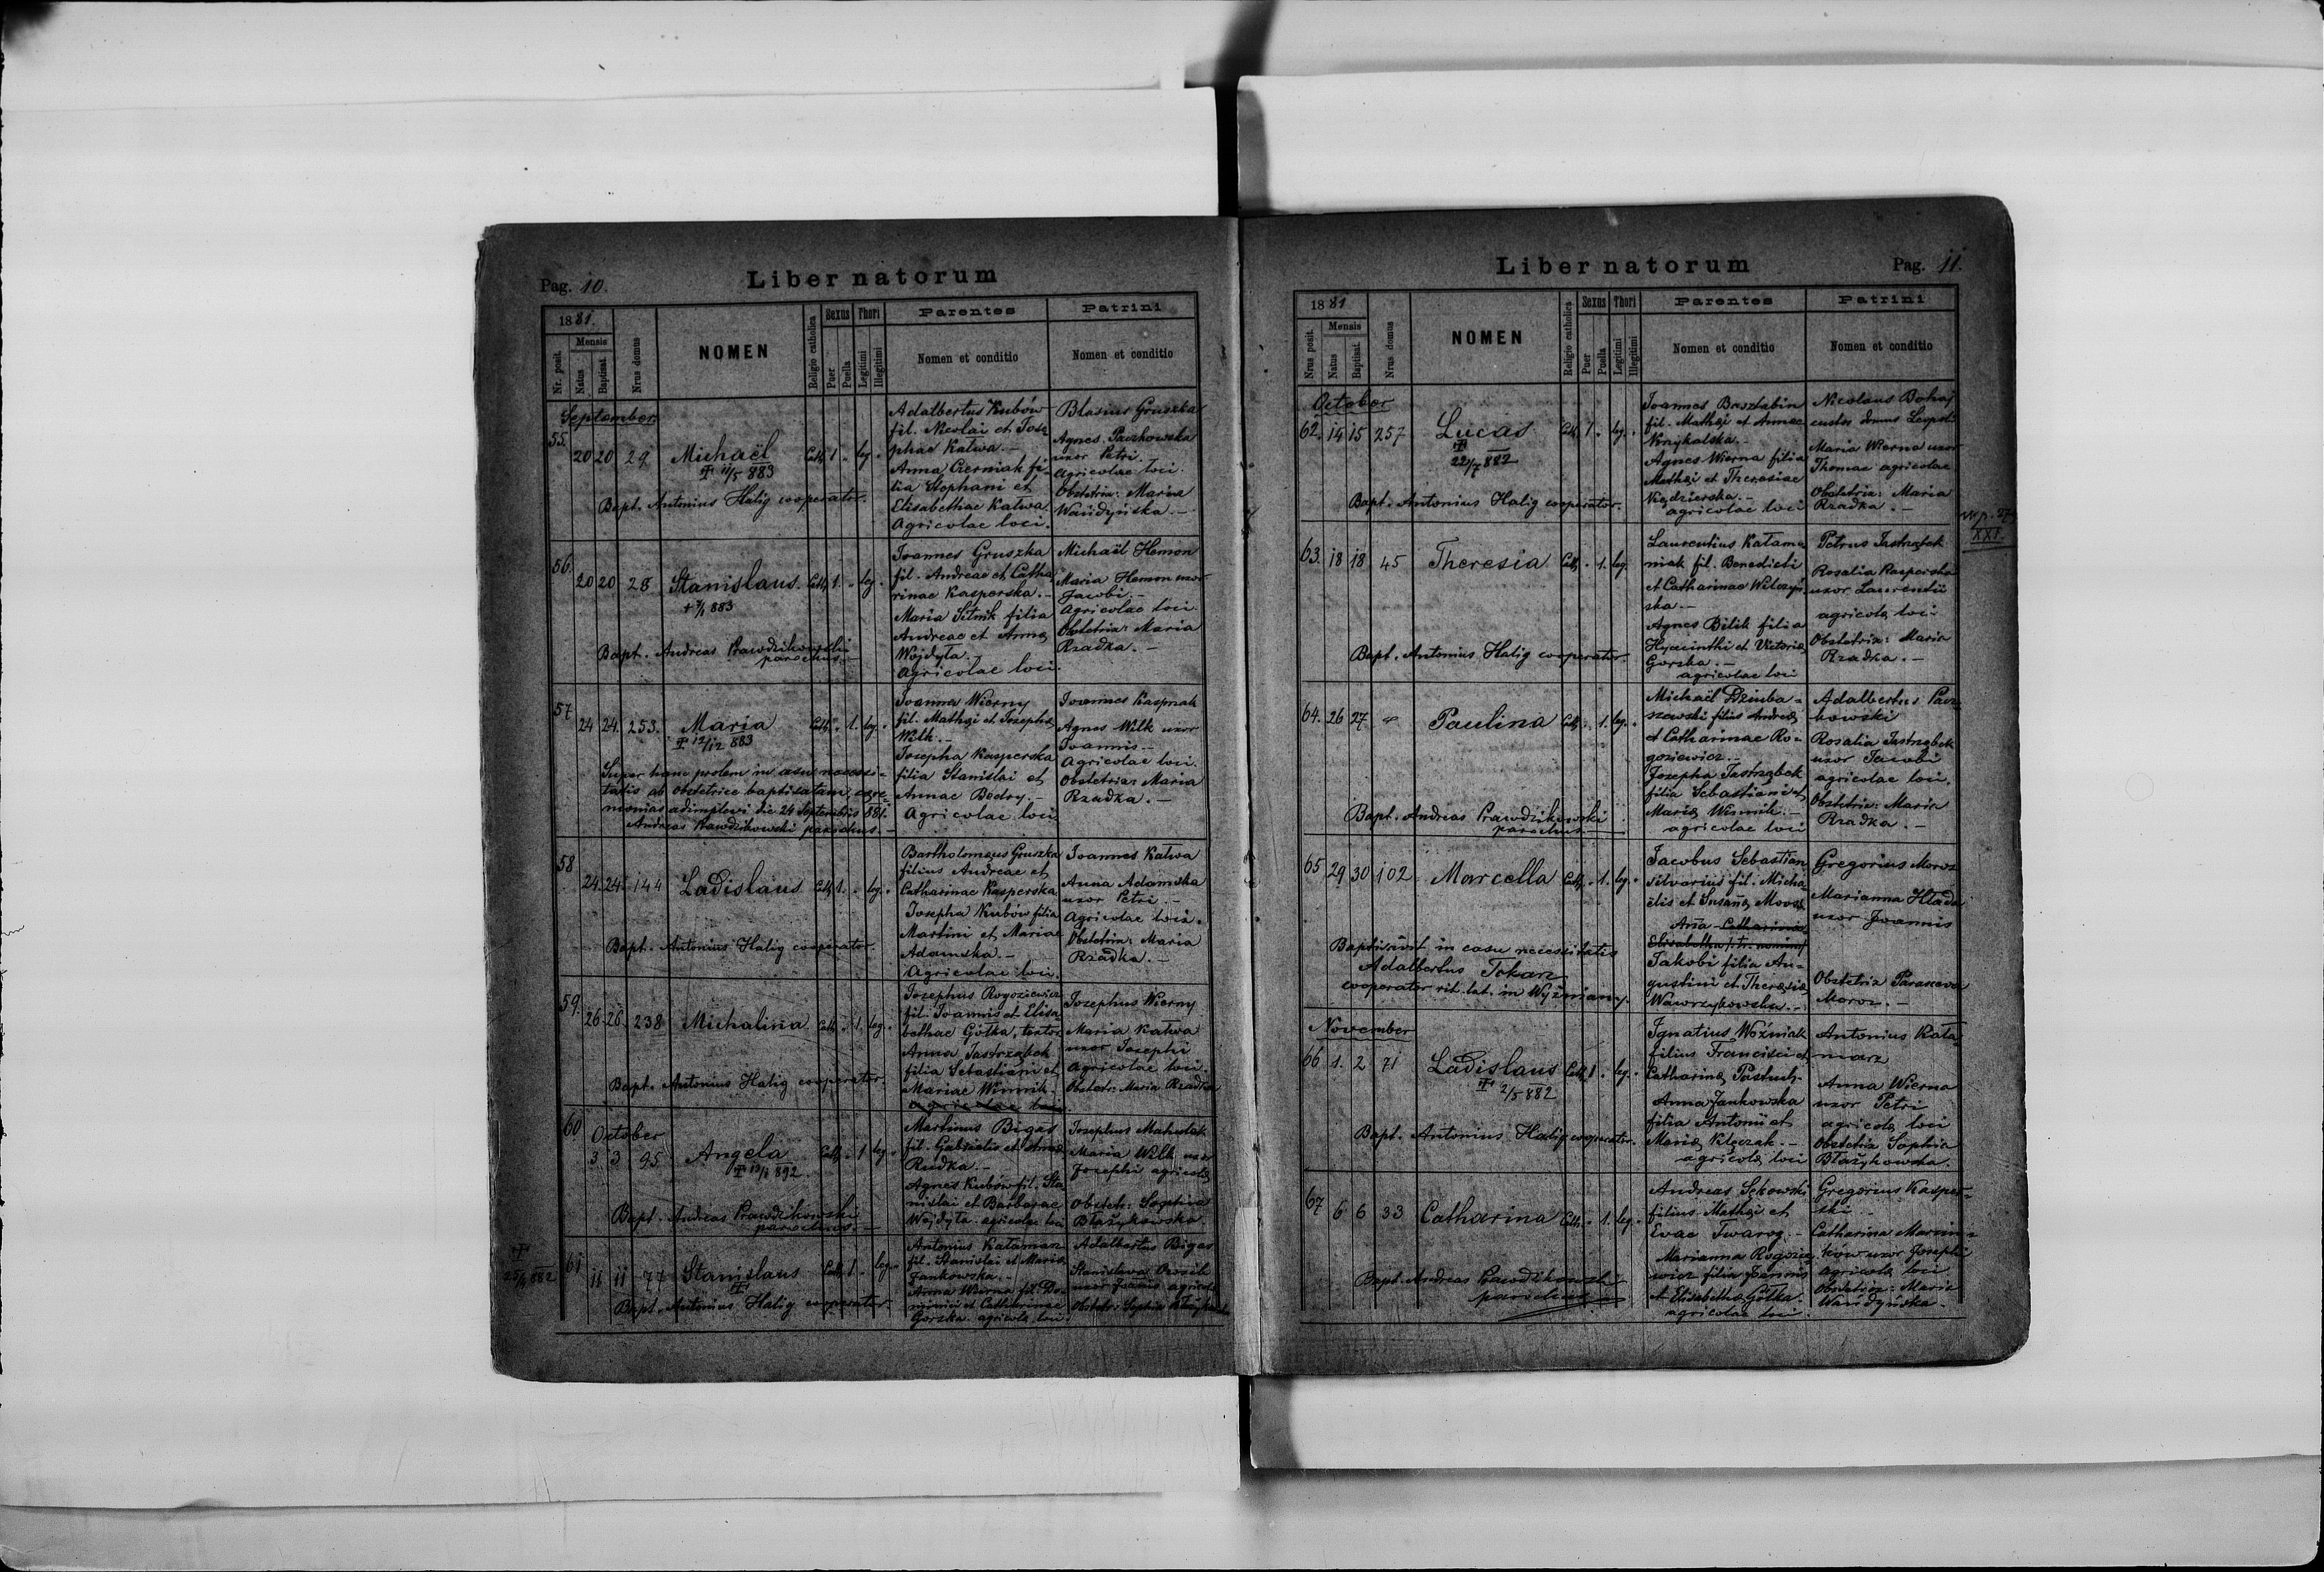 Pag. 10.
Liber natorum
1881.
Nr. posit.
Mensis
Natus
Baptisat.
Nrus domus
NOMEN
Religio catholica
Sexus
Puer
Puella
Thori
Legitimi
Illegitimi
Parentes
Nomen et conditio
Patrini
Nomen et conditio
September
55. 20 20 29 Michaël Cath 1 " leg. "
11/5 883
Bapt. Antonius Halig cooperator.
Adalbertus Kubów
fil. Nicolai et Jose
phae Katwa. -
Anna Czerniak fi-
lia Stephani et
Elisabethae Katwa.
Agricolae loci.
Blasius Gruszka
Agnes Paczkowska
uxor Petri.
Agricolae loci.
Obstetrix: Maria
Wańdyńska. -
56. 20 20 28 Stanislaus. Cath 1. " leg. "
883
Bapt. Andreas Prawdzikowski
parochus. -
Joannes Gruszka
fil. Andreae et Catha
rinae Kasperska. -
Maria Sitnik filia
Andreae et Annae
Wojdyła. -
Agricolae loci.
Michaël Hemon
Maria Hemon uxor
Jacobi. -
Agricolae loci
Obstetrix: Maria
Rzadka. -
57 24 24. 253. Maria Cath. " 1. leg. "
12/12 883
Super hanc prolem in casu necessi-
tatis ab obstetrice baptisatam, cere-
monias adimplevi die 24 Septembris 881.
Andreas Prawdzikowski parochus. -
Joannes Wierny
fil. Mathaei et Josephae
Wilk. -
Josepha Kasperska
filia Stanislai et
Annae Bodry. -
Agricolae loci
Joannes Kasprzak
Agnes Wilk uxor
Joannis. -
Agricolae loci.
Obstetrix: Maria
Rzadka. -
58 24. 24. 144 Ladislaus Cath 1. " leg. "
Bapt. Antonius Halig cooperator.
Bartholomaeus Gruszka
filius Andreae et
Catharinae Kasperska
Josepha Kubów filia
Martini et Mariae
Adamska. -
Agricolae loci.
Joannes Katwa
Anna Adamska
uxor Petri. -
Agricolae loci.
Obstetrix: Maria
Rzadka. -
59. 26. 26. 238 Michalina Cath " 1. leg. "
Bapt. Antonius Halig cooperator.
Josephus Rogoziewicz
fil. Joannis et Elisa-
bethae Gółka, textor
Anna Jastrząbek
filia Sebastiani et
Mariae Winnik.
agricolae loci
Josephus Wierny
Maria Katwa
uxor Josephi
agricolae loci.
Obstetr: Maria Rzadka
60 October
3 3 95 Angela Cath " 1 leg. "
892
Bapt. Andreas Prawdzikowski
parochus. -
Martinus Bigas
fil. Gabrielis et Annae
Rudka. -
Agnes Kubów fil. Sta
nislai et Barbarae
Wojdyła. agricolae loci
Maria Wilk uxor
Josephi agricolae
Obstetr: Sophia
Błażykowska.
61 11 11 77 Stanislaus Cath 1. " leg. "
882
Bapt. Antonius Halig cooperator
Antonius Kataman
fil. Stanislai et Mariae
Jankowska. -
Anna Wierna fil. Do-
minici et Catharinae
Gorska. agricolae loci.
Adalbertus Bigas
uxor Joannis agricolae
Obstetr: Sophia Błażykowska
Liber natorum
Pag. 11.
1881
Nrus posit.
Mensis
Natus
Baptisat.
Nrus domus
NOMEN
Religio catholica
Sexus
Puer
Puella
Thori
Legitimi
Illegitimi
Parentes
Nomen et conditio
Patrini
Nomen et conditio
October
62. 14 15 257 Lucas Cath 1. " leg. "
22/7 882
Bapt. Antonius Halig cooperator.
fil. Mathaei et Annae
Krzykalska. -
Agnes Wierna filia
Mathaei et Theresiae
Niedzierska. -
agricolae loci
Nicolaus Bohaj
custos domus
Maria Wierna uxor
Thomae agricolae
Obstetrix: Maria
Rzadka. -
XXI.
63. 18 18 45 Theresia Cath " 1. leg.
Bapt. Antonius Halig cooperator.
Laurentius Katama
niak fil. Benedicti
et Catharinae Wilczyń
ska. -
Agnes Bilik filia
Hyacinthi et Victoriae
Gorska. -
agricolae loci
Petrus Jastrząbek
Rosalia Kasperska
uxor Laurentii
agricolae loci
Obstetrix: Maria
Rzadka. -
64. 26 27 " Paulina Cath " 1. leg. "
Bapt. Andreas Prawdzikowski
parochus. -
Michaël Dziuba-
szewski filius Andreae
et Catharinae Ro-
goziewicz. -
Josepha Jastrząbek
filia Sebastiani et
Mariae Winnik. -
agricolae loci
Adalbertus Pacz
kowski
Rosalia Jastrząbek
uxor Jacobi
agricolae loci.
Obstetrix: Maria
Rzadka. -
65 29 30 102 Marcella Cath " 1. leg. "
Baptisavit in casu necessitatis
Adalbertus Tokarz
cooperator rit. lat. in Wyżniany.
Jacobus Sebastian
silvarius fil. Micha
elis et Susannae
Anna Catharina
Elisabetha
Jakobi filia Au-
gustini et Theresiae
Wawrzykowska. -
Gregorius Moroz
Marianna
uxor Joannis
Obstetrix Parasceva
Moroz. -
November
66 1. 2 71 Ladislaus Cath 1 " leg. "
2/5 882
Bapt. Antonius Halig cooperator.
Ignatius Woźniak
filius Francisci et
Catharinae Pastuch.
Anna Jankowska
filia Antonii et
Mariae Klęczak. -
agricolae loci
Antonius Kata-
marz
Anna Wierna
uxor Petri
agricolae loci
Obstetrix Sophia
Błażykowska.
67 6 6 33 Catharina Cath. " 1. leg. "
Bapt. Andreas Prawdzikowski
parochus
Andreas Sękowski
filius Mathaei et
Evae Twarog. -
Marianna Rogozie
wicz filia Joannis
et Elisabethae Gółka.
agricolae loci.
Gregorius Kasper-
ski. -
Catharina Marcin-
ków uxor Josephi
agricolae loci
Obstetrix: Maria
Wańdyńska.